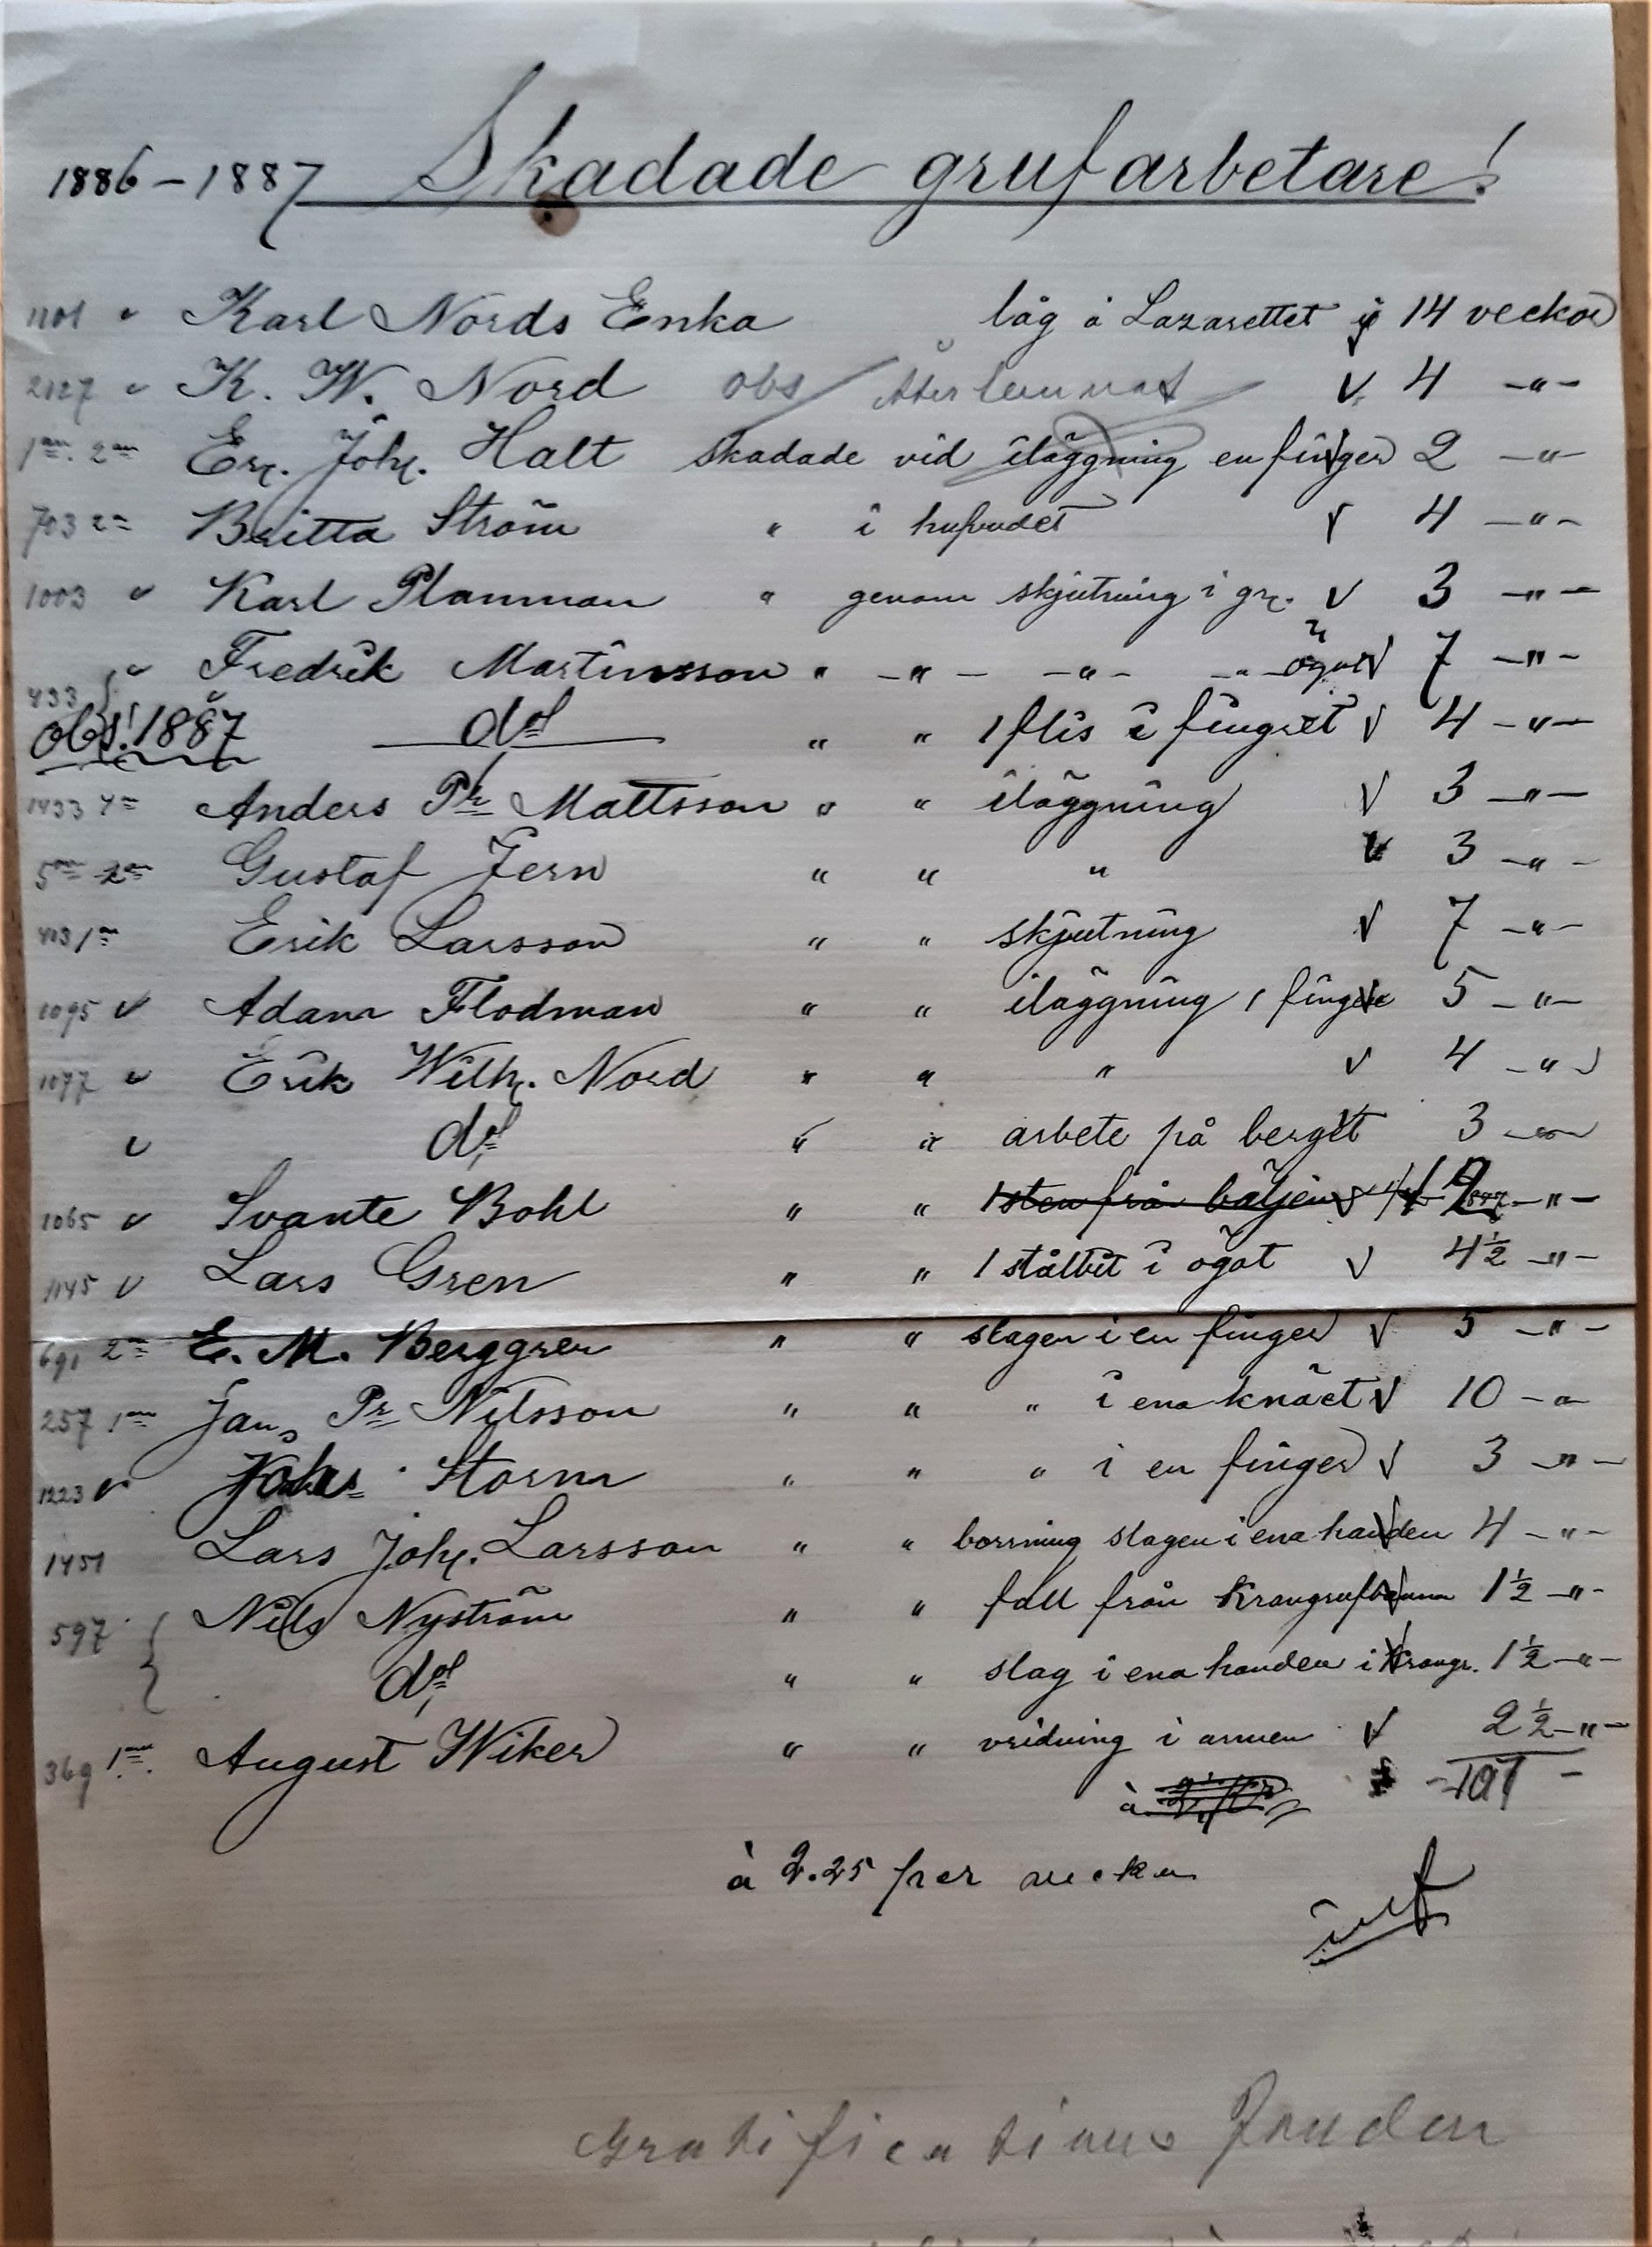 1886-1887 Skadade grufarbetare!
1101 Karl Nords Enka låg å Lazarettet 14 veckor
2127 K. W. Nord obs Återlemnat v 4 -"-
1an 2an Er. Joh. Halt skadade vid iläggning en finger 2 -"-
703 2= Britta Ström " i hufvudet v 4 -"-
1003 v Karl Planman " genom skjutning i gr. v 3 -"-
Fredrik Martinsson " -"- -"- -"- ögat v 7 -"-
433 obs! 1887 do " " 1 flis i fingret v 4 -"-
1433 Anders Pr Mattsson " " iläggning v 3 -"-
Gustaf Jern " " " v 3 -"-
Erik Larsson " " skjutning v 7 -"-
1095 v Adam Flodman " " iläggning 1 finger 5 -"-
1077 v Erik Wilh. Nord " " " v 4 -"-
v do " " arbete på berget 3 -"-
1065 v Svante Bohl " " 1 sten från -"-
1145 v Lars Gren " " 1 stålbit i ögat v 4½ -"-
691 2an E. M. Berggren " " slagen i en finger v 5 -"-
257 1an Jan Pr Nilsson " " " i ena knäet v 10 -"-
1223 v Johs Storm " " " i en finger v 3 -"-
1451 Lars Joh. Larsson " " borrning slagen i ena handen 4 -"-
597 Nils Nyström " " fall från 1½ -"-
do " " slag i ena handen i Krangr. 1½ -"-
369 1an August Wiker " " vridning i armen v 2½ -"-
à
à 2.25 per veckan
Gratifications Fonden